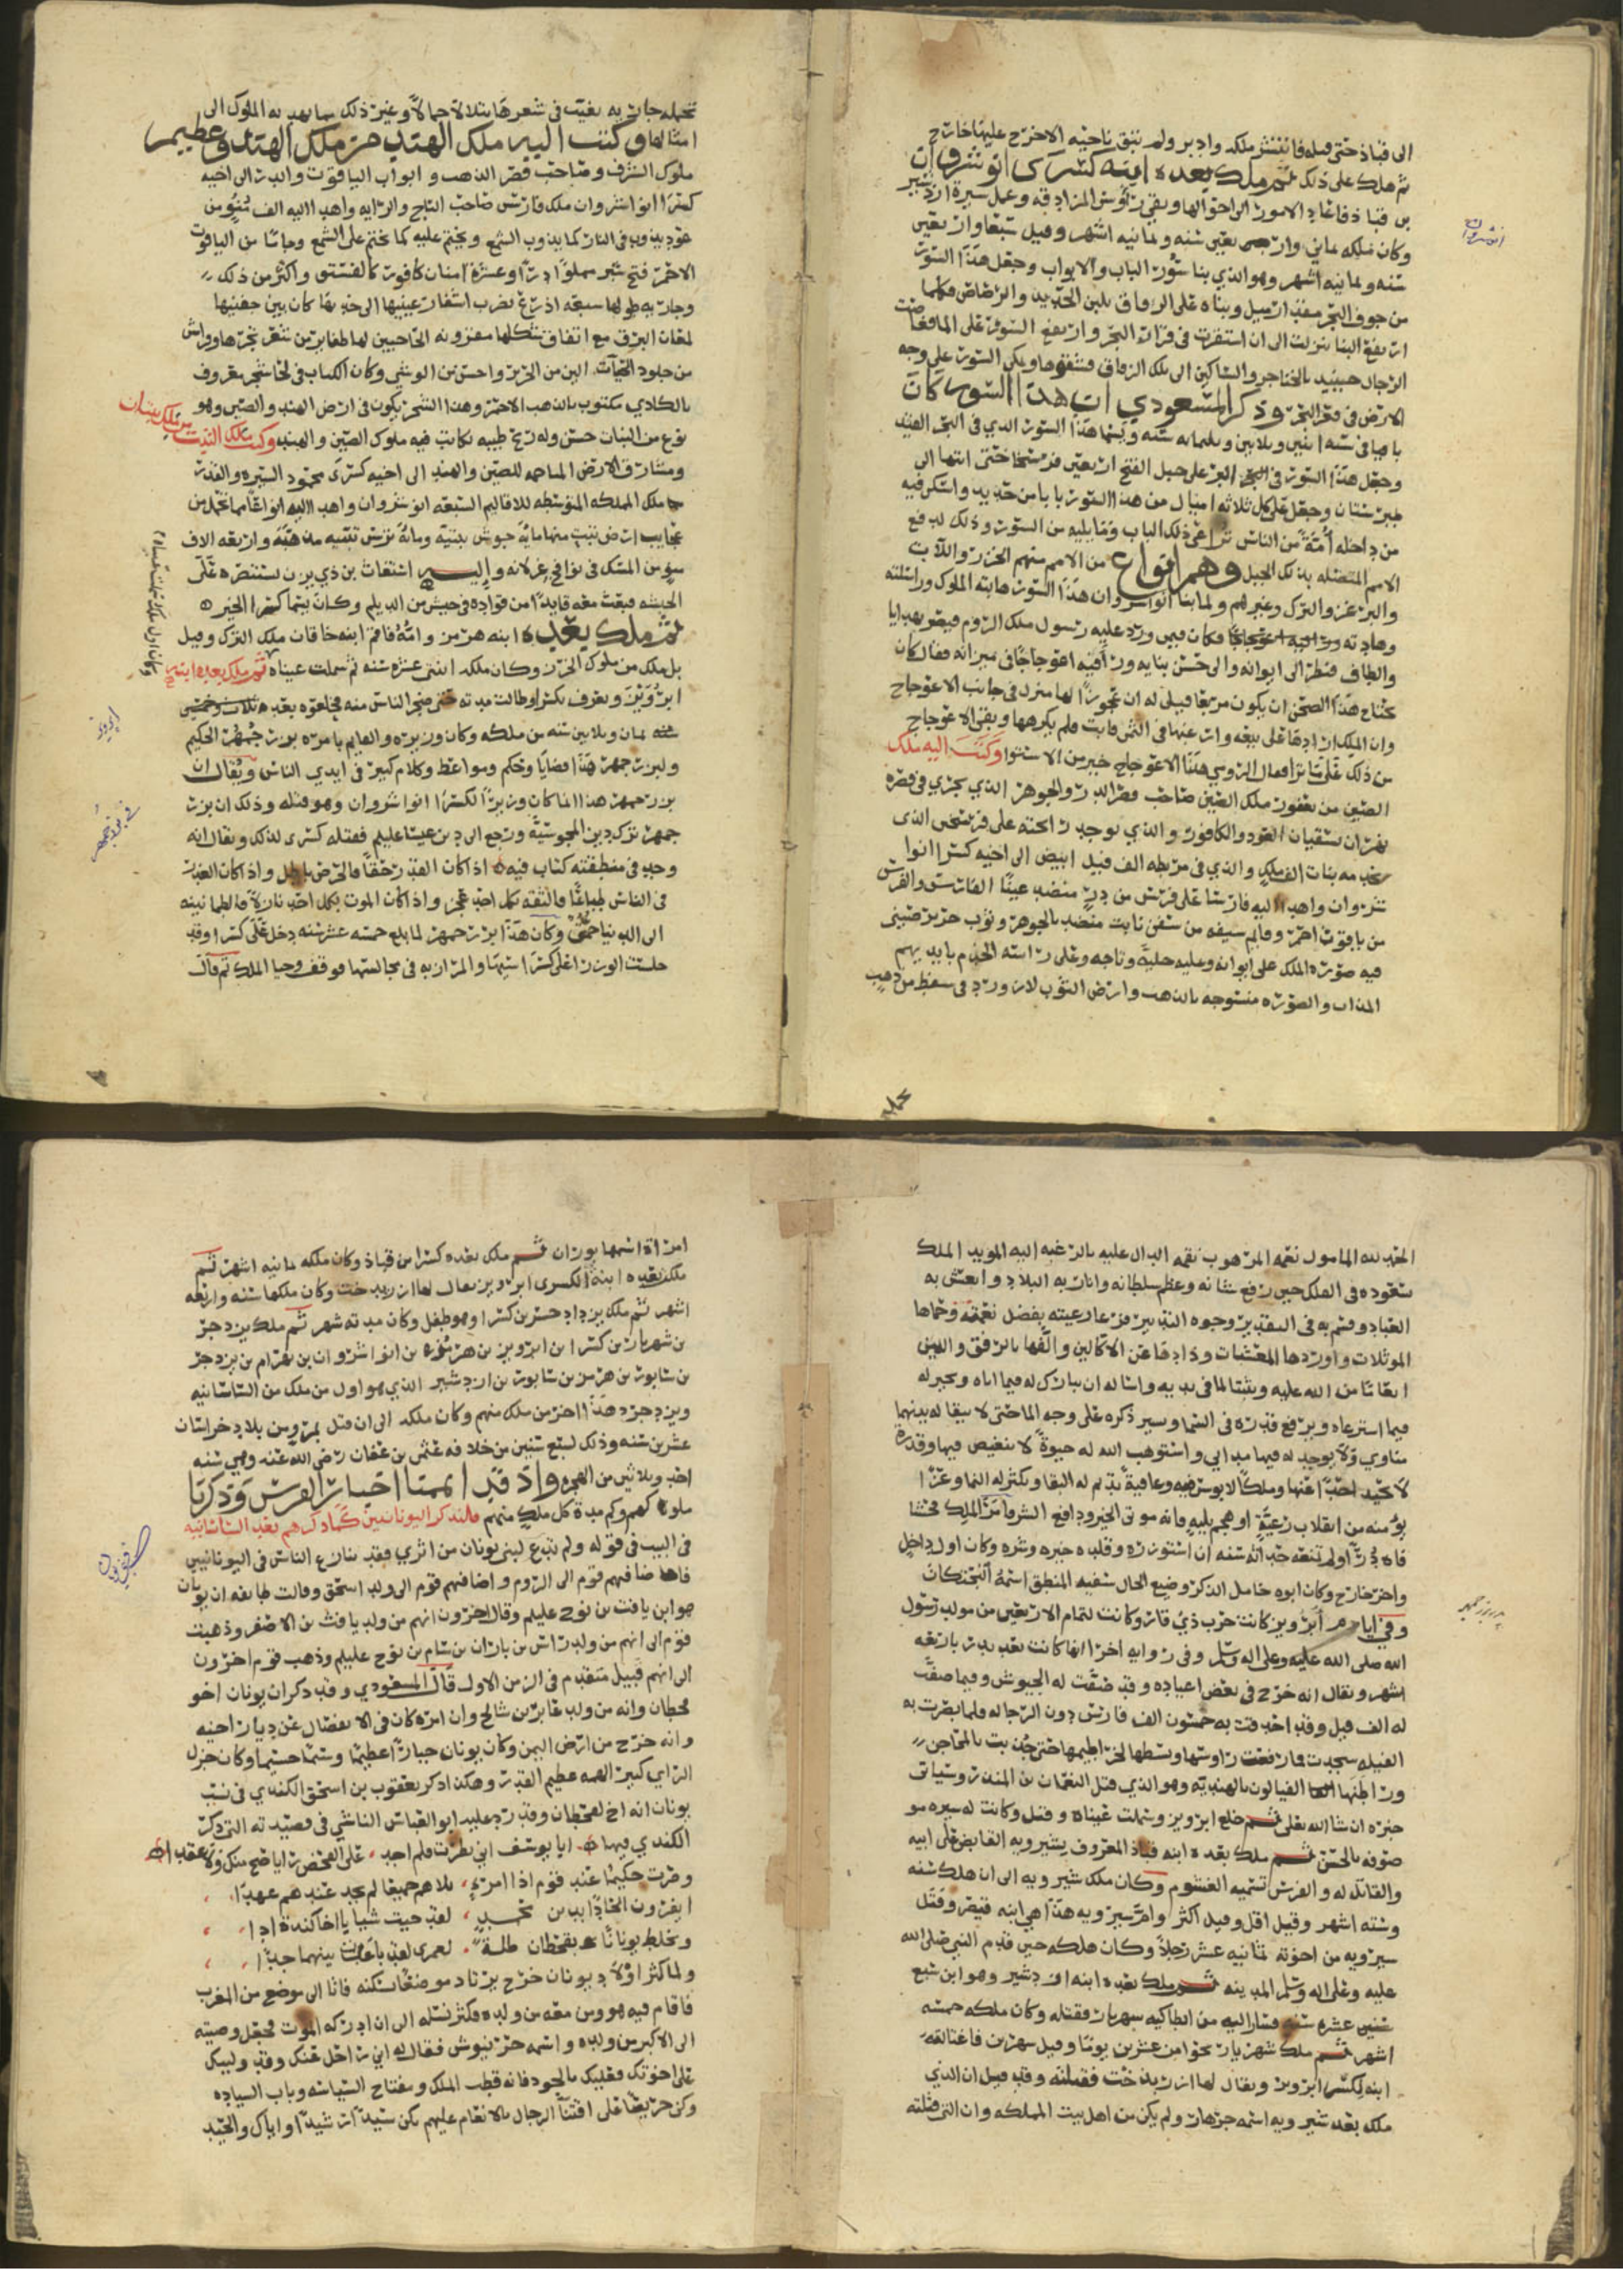 الى قباذ حتى قتله فانتشر ملكه وادبر ولم تبق ناحيه الا خرج عليها خارج
ثم هلك على ذلك ثم ملك بعده ابنه كسرى انوشروان
بن قباذ فاعاد الامور الى احوالها ونفى رؤس المزادقه وعمل سيرة اردشير
وكان ملكه سبعا واربعين سنه وثمانيه اشهر وقيل سبعا واربعين
سنه وثمانيه اشهر وهو الذي بنا سور الباب والابواب وجعل هذا السور
من جوف البحر مقدار ميل وبناه على الزقاق بلبن الحديد والرصاص فكلما
ارتفع البنا نزلت الى ان استقرت في قرار البحر وارتفع السور على الما فغاصت
الرجال حينئذ بالخناجر والسكاكين الى تلك الزقاق فشقوها وتمكن السور على وجه
الارض في قعر البحر وذكر المسعودي ان هذا السور كان
باقيا في سنه اثنين وثلاثين وثلثمايه سنه ويسما هذا السور الذي في البحر القيد
وجعل هذا السور في البر على جبل الفتح اربعين فرسخا حتى انتها الى
طبرستان وجعل على كل ثلاثه اميال من هذا السور بابا من حديد واسكن فيه
من داخله أمّة من الناس تراعي ذلك الباب وما يليه من السور وذلك لدفع
الامم المتصله بذلك الجبل وهم انواع من الامم منهم الخزر واللان
والبرغز والترك وغيرهم ولما بنا انوشروان هذا السور هابته الملوك وراسلته
وهادته وكان فيمن ورد عليه رسول ملك الروم قيصر بهدايا
والطاف فنظر الى ايوانه والى حسن بنايه وراى فيه اعوجاجا في ميدانه فقال كان
يحتاج هذا الصحن ان يكون مربعا فقيل له ان عجوزا لها منزل في جانب الاعوجاج
وان الملك ارادها على بيعه وارغبها في الثمن فابت فلم يكرهها وبقي الاعوجاج
من ذلك على ما ترا فقال الرومي هذا الاعوجاج خير من الاستوا وكتب اليه ملك
الصين من يغفور ملك الصين صاحب قصر الدر والجوهر الذي يجري في قصره
نهران يسقيان العود والكافور والذي توجد رائحته على فرسخين الذي
تخدمه بنات الف ملك والذي في مربطه الف فيل ابيض الى اخيه كسرا انوا
شروان واهدا اليه فارسا على فرس من در منضد عينا الفارس والفرس
من ياقوت احمر وقايم سيفه من سفن ثابت منضد بالجوهر وثوب حرير صيني
فيه صورة الملك على ايوانه وعليه حليته وتاجه وعلى راسه الخدم بايديهم
المذاب والصورة منسوجه بالذهب وارض الثوب لازورد في سفط من ذهب
تحمله
انوشروان
تحمله جاريه تغيب في شعرها تتلالا جمالا وغير ذلك مما يهديه الملوك الى
امثالها وكتب اليه ملك الهند من ملك الهند وعظيم
ملوك الشرف وصاحب قصر الذهب وابواب الياقوت والدر الى اخيه
كسرا انوا شروان ملك فارس صاحب التاج والرايه واهدا اليه الف من
عود يذوب في النار كما يذوب الشمع ويختم عليه كما يختم على الشمع وجاما من الياقوت
الاحمر فتح شبر مملوا درا وعشرة امنان كافور كالفستق واكثر من ذلك
وجاريه طولها سبعة اذرع تضرب اشفار عينيها الى خديها كان بين جفنيها
لمعان البرق مع اتقان شكلها مقرونه الحاجبين لها ضفاير من شعر تجرها وفراش
من جلود الحيات الين من الحرير واحسن من الوشي وكان الكتاب في لحا شجر معروف
بالكاذي مكتوب بالذهب الاحمر وهذا الشجر يكون في ارض الهند والصين وهو
نوع من النبات حسن وله ريح طيبه تكاتب فيه ملوك الصين والهند وكتب ملك التبت من ملك تبتان
ومشارق الارض المتاخمه للصين والهند الى اخيه كسرى محمود السيره والقدر
ملك المملكه المتوسطه للاقاليم السبعه انو شروان واهدا اليه انواعا مما يحمل من
عجايب ارض تبت منها مايه جوشن تبتيه ومائة ترس تبتيه مذهبة واربعه الاف
من المسك في نوافج غزلانه واليه استغاث بن ذي يزن يستنصره على
الحبشه فبعث معه قايدا من قواده في جيش من الديلم وكان يسما كسرا الخير
ثم ملك بعده ابنه هرمز وامه فاقم ابنه خاقان ملك الترك وقيل
بل ملك من ملوك الخزر وكان ملكه اثنى عشره سنه ثم سملت عيناه ثم ملك بعده ابنه
ابرويز ويعرف بكسرا وطالت مدته حتى ضجر الناس منه فخلعوه بعد
سنه ثمان وثلاثين سنه من ملكه وكان وزيره والقايم بامره بزرجمهر الحكيم
ولبزرجمهر هذا قضايا وحكم ومواعظ وكلام كبير في ايدي الناس ويقال ان
بزرجمهر هذا انما كان وزيرا لكسرا انوا شروان وهو قتله وذلك ان بزر
جمهر ترك دين المجوسية ورجع الى دين عيسا عليلم فقتله كسرى لذلك ويقال انه
وجد في منطقته كتاب فيه اذا كان القدر حقا فالحرص باطل واذا كان الغدر
في الناس طباعا فالثقه بكل احد عجز واذا كان الموت بكل احد نازلا فالطمانينه
الى الدنيا حمق وكان هذا بزرجمهر لما بلغ خمسه عشر سنه دخل على كسرا وقد
جلست الوزرا على كراسيها والمرازبه في مجالسها فوقف وحيا الملك ثم قال
الحمد لله المامول نعمه المرهوب نقمه الدال عليه بالرغبه اليه المويد الملك
بسعوده في الفلك حين رفع شانه وعظم سلطانه وانار به البلاد وانعش به
العباد وقسم به في التقدير وجوه التدبير فرعا رعيته بفضل نعمته وحماها
الموئلات واوردها المعشبات وذاد عنها الاكالين والفها بالرفق واللين
انعاما من الله عليه وتثبيتا لما في يديه واساله ان يبارك له فيما اتاه ويخير له
فيما استرعاه ويرفع قدره في السما وسير ذكره على وجه الما حتى لا يبقا له بينهما
مناوي ولا يوجد له فيهما مداني واستوهب الله له حيوة لا تنغيص فيها وقدرة
لا يحيد احد عنها وملكا لا بوس فيه وعافية تديم له البقا وتكثر له النما وعزا
يؤمنه من انقلاب رعية او هجوم بلية فانه موتي الخير ودافع الشر فامر الملك فحشا
فاه درا ولم تمنعه حداثه سنه ان استوزره وقلده خيره وشره وكان اول داخل
واخر خارج وكان ابوه خامل الذكر وضيع الحال سفيه المنطق اسمه البختكان
وفي ايام ابرويز كانت حرب ذي قار وكانت لتمام الاربعين من مولد رسول
الله صلى الله عليه وعلى اله وسلم وفي روايه اخرا انها كانت بعد بدر باربعه
اشهر ويقال انه خرج في بعض اعياده وقد صفت له الجيوش وفيما صفت
له الف فيل وقد احدقت به خمسون الف فارس دون الرجاله فلما بصرت به
الفيله سجدت فما رفعت راوسها وبسطها لخراطيمها حتى جذبت بالمحاجن
وراطنها الفيالون بالهنديه وهو الذي قتل النعمان بن المنذر وسياتي
خبره ان شا الله تعلى ثم خلع ابرويز وسملت عيناه وقتل وكانت له سيره مو
صوفه بالحسن ثم ملك بعده ابنه قباذ المعروف بشيرويه القابض على ابيه
والقاتل له والفرس تسميه الغشوم وكان ملك شيرويه الى ان هلك سنه
وسته اشهر وقيل اقل وقيل اكثر وام شيرويه هذا هي ابنه قيصر وقتل
شيرويه من اخوته ثمانيه عشر رجلا وكان هلكه حين قدم النبي صلى الله
عليه وعلى اله وسلم المدينه ثم ملك بعده ابنه اردشير وهو ابن سبع
سنين عشره سنه فسار اليه من انطاكيه شهريار فقتله وكان ملكه خمسه
اشهر ثم ملك شهريار نحوا من عشرين يوما وقيل شهرين فاغتالته
ابنه لكسرا ابرويز ويقال لها ازرميدخت فقتلته وقد قيل ان الذي
ملك بعد شيرويه اسمه جرهان ولم يكن من اهل بيت المملكه وان التي قتلته
امراة اسمها بوران ثم ملك بعده كسرا بن قباذ وكان ملكه ثمانيه اشهر ثم
ملك بعده ابنة لكسرى ابرويز يقال لها ازرميدخت وكان ملكها سنه واربعه
اشهر ثم ملك يزدادخسر بن كسرا وهو طفل وكان مدته شهر ثم ملك يزدجر
بن شهريار بن كسرا بن ابرويز بن هرمز بن انوا شروان بن بهرام بن يزدجر
بن سابور بن هرمز بن سابور بن اردشير الذي هو اول من ملك من الساسانيه
ويزدجرد هذا اخر من ملك منهم وكان ملكه الى ان قتل بمرو من بلاد خراسان
عشرين سنه وذلك لسبع سنين من خلافه عثمن بن عفان رضي الله عنه وهي سنه
احد وثلاثين من الهجره واذ قد اتممنا اخبار الفرس وذكرنا
ملوكهم وكم مدة كل ملك منهم فلنذكر اليونانيين كما ذكرهم بعد الساسانيه
في البيت في قوله ولم تدع لبني يونان من اثري فقد تنازع الناس في اليونانيين
فاضافهم قوم الى الروم واضافهم قوم الى ولد اسحق وقالت طايفه ان يونان
هو ابن يافث بن نوح عليلم وقال اخرون انهم من ولد يافث بن الاصفر وذهب
قوم الى انهم من ولد راش بن باران بن سام بن نوح عليلم وذهب قوم اخرون
الى انهم قبيل متقدم في الزمن الاول قال المسعودي وقد ذكر ان يونان اخو
قحطان وانه من ولد عابر بن شالح وان امره كان في الانفصال عن ديار اخيه
وانه خرج من ارض اليمن وكان يونان جبارا عظيما وسيما جسيما وكان جزل
الراي كبير الهمه عظيم القدر وهكذا ذكر يعقوب بن اسحق الكندي في نسب
يونان انه اخ لقحطان وقد رد عليه ابو العباس الناشي في قصيدته التي ذكر
الكندي فيها ابا يوسف اني نظرت فلم اجد على الفحص رايا صح منك ولا عقدا
وصرت حكيما عند قوم اذا امرئ بلاهم جميعا لم يجد عندهم عهدا
ايقرون الحادا بدين محمد لقد جيت شيا يا اخا كندة ادا
وتخلط يونانا بقحطان ظلة لعمري لقد باعدت بينهما جدا
ولما كثر اولاد يونان خرج يرتاد موضعا يسكنه فاتا الى موضع من المغرب
فاقام فيه هو ومن معه من ولده فكثر نسله الى ان ادركه الموت فجعل وصيته
الى الاكبر من ولده واسمه حربيوش فقال له اني راحل عنك وقد وليتك
على اخوتك فعليك بالجود فانه قطب الملك ومفتاح السياسه وباب السياده
وكن حريصا على اقتنا الرجال بالانعام عليهم تكن سيدا رشيدا واياك والحيد